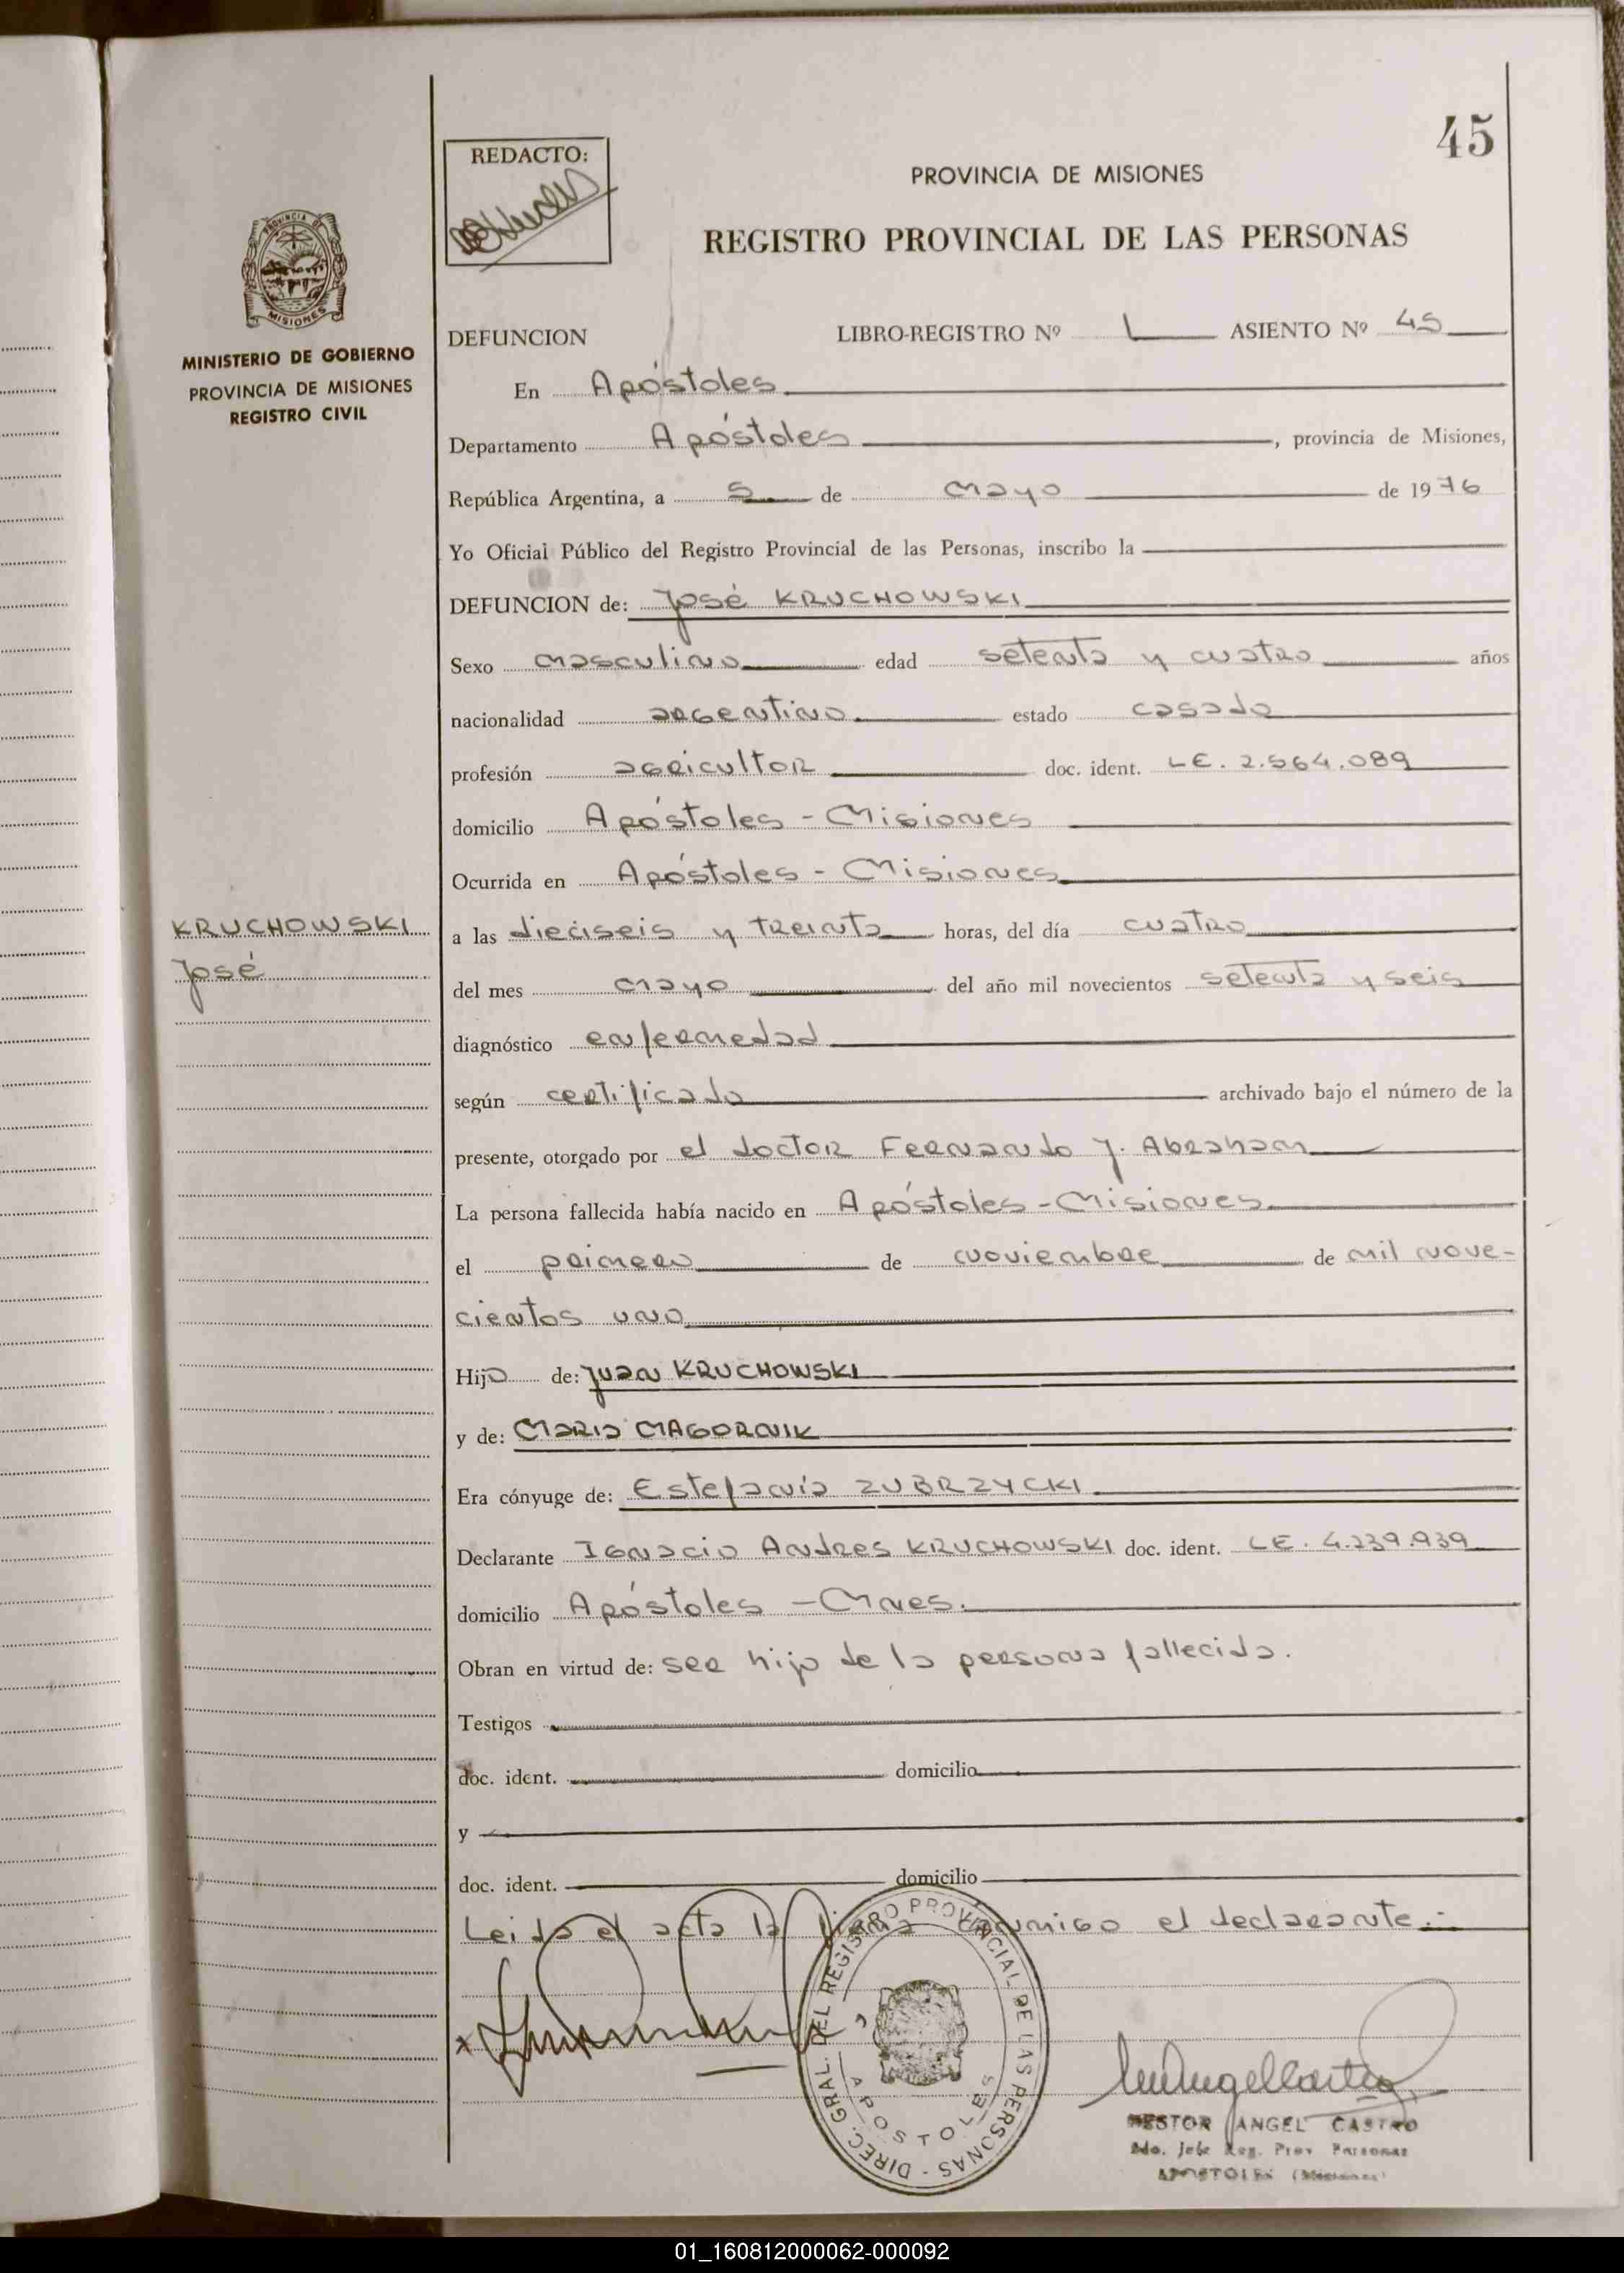 45
REDACTO:
PROVINCIA DE MISIONES
REGISTRO PROVINCIAL DE LAS PERSONAS
PROVINCIA DE
MISIONES
MINISTERIO DE GOBIERNO
PROVINCIA DE MISIONES
REGISTRO CIVIL
DEFUNCION LIBRO-REGISTRO Nº I ASIENTO Nº 45
En Apóstoles
Departamento Apóstoles, provincia de Misiones,
República Argentina, a 5 de mayo de 1976
Yo Oficial Público del Registro Provincial de las Personas, inscribo la
DEFUNCION de: José KRUCHOWSKI
Sexo masculino edad setenta y cuatro años
nacionalidad argentino estado casado
profesión agricultor doc. ident. LE. 2.564.089
domicilio Apóstoles - Misiones
Ocurrida en Apóstoles - Misiones
KRUCHOWSKI
José
a las dieciseis y treinta horas, del día cuatro
del mes mayo del año mil novecientos setenta y seis
diagnóstico enfermedad
según certificado archivado bajo el número de la
presente, otorgado por el doctor Fernando J. Abraham
La persona fallecida había nacido en Apóstoles - Misiones
el primero de noviembre de mil nove-
cientos uno
Hijo de: Juan KRUCHOWSKI
y de: Maria MAGORNIK
Era cónyuge de: Estefanía ZUBRZYCKI
Declarante Ignacio Andres KRUCHOWSKI doc. ident. LE. 4.239.939
domicilio Apóstoles - Mnes.
Obran en virtud de: ser hijo de la persona fallecida.
Testigos
doc. ident. domicilio
y
doc. ident. domicilio
Leida el acta la firma conmigo el declarante.-
DIREC. GRAL. DEL REGISTRO PROVINCIAL DE LAS PERSONAS -
APOSTOLES
NESTOR ANGEL CASTRO
2do. Jefe Reg. Prov. Personas
APOSTOLES (Misiones)
01_160812000062-000092